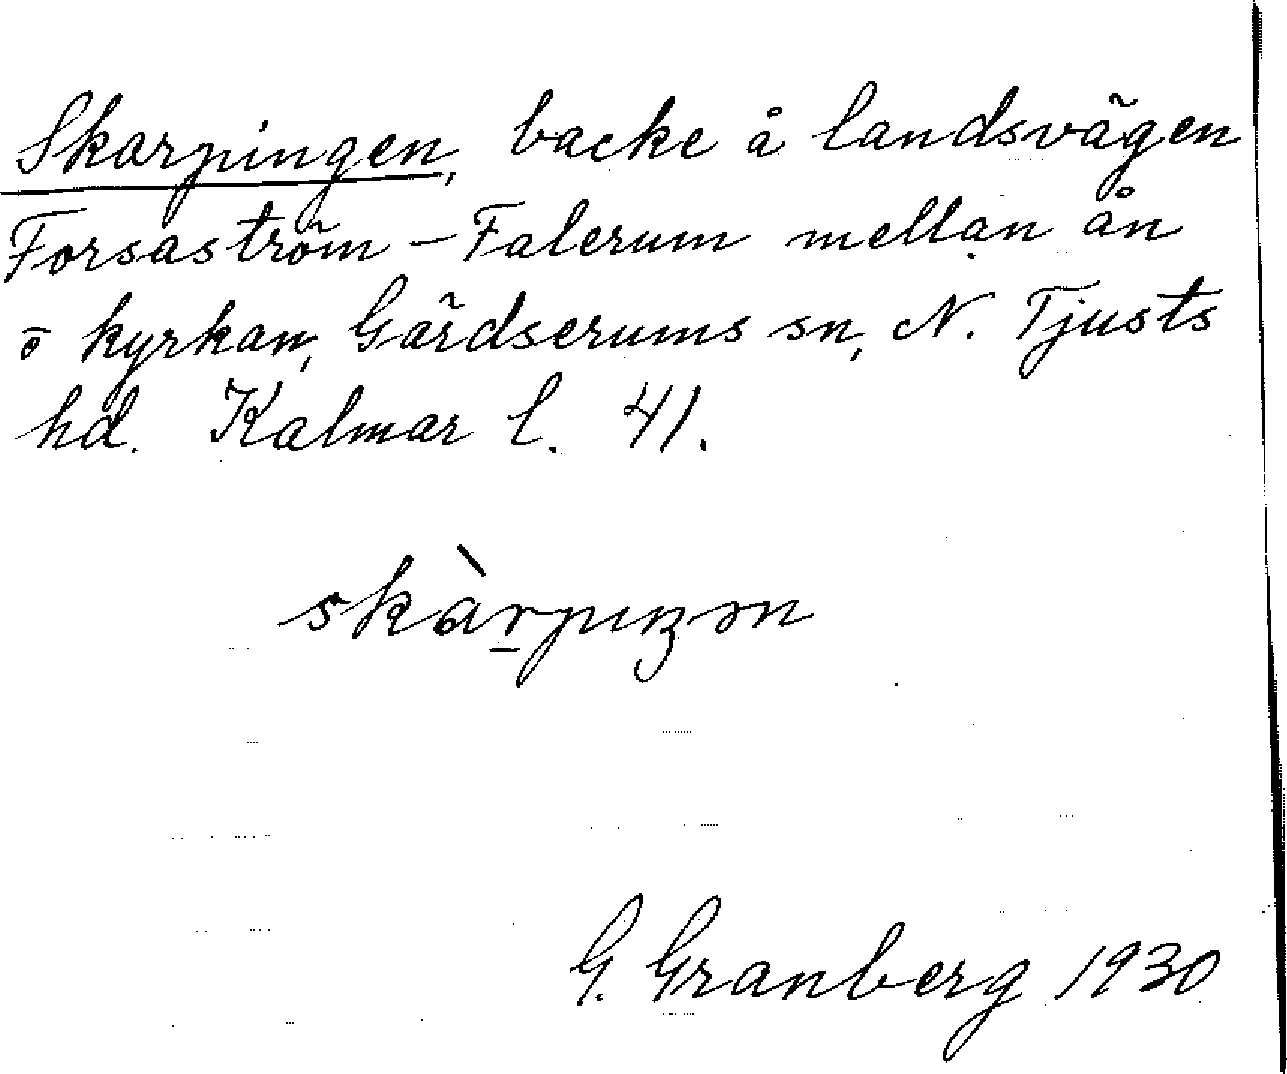 Skarpingen, backe å landsvägen
Forsaström – Falerum mellan ån
o kyrkan, Gärdserums sn, N. Tjusts
hd. Kalmar l. 41.
skàr̲pıŋən
G. Granberg 1930